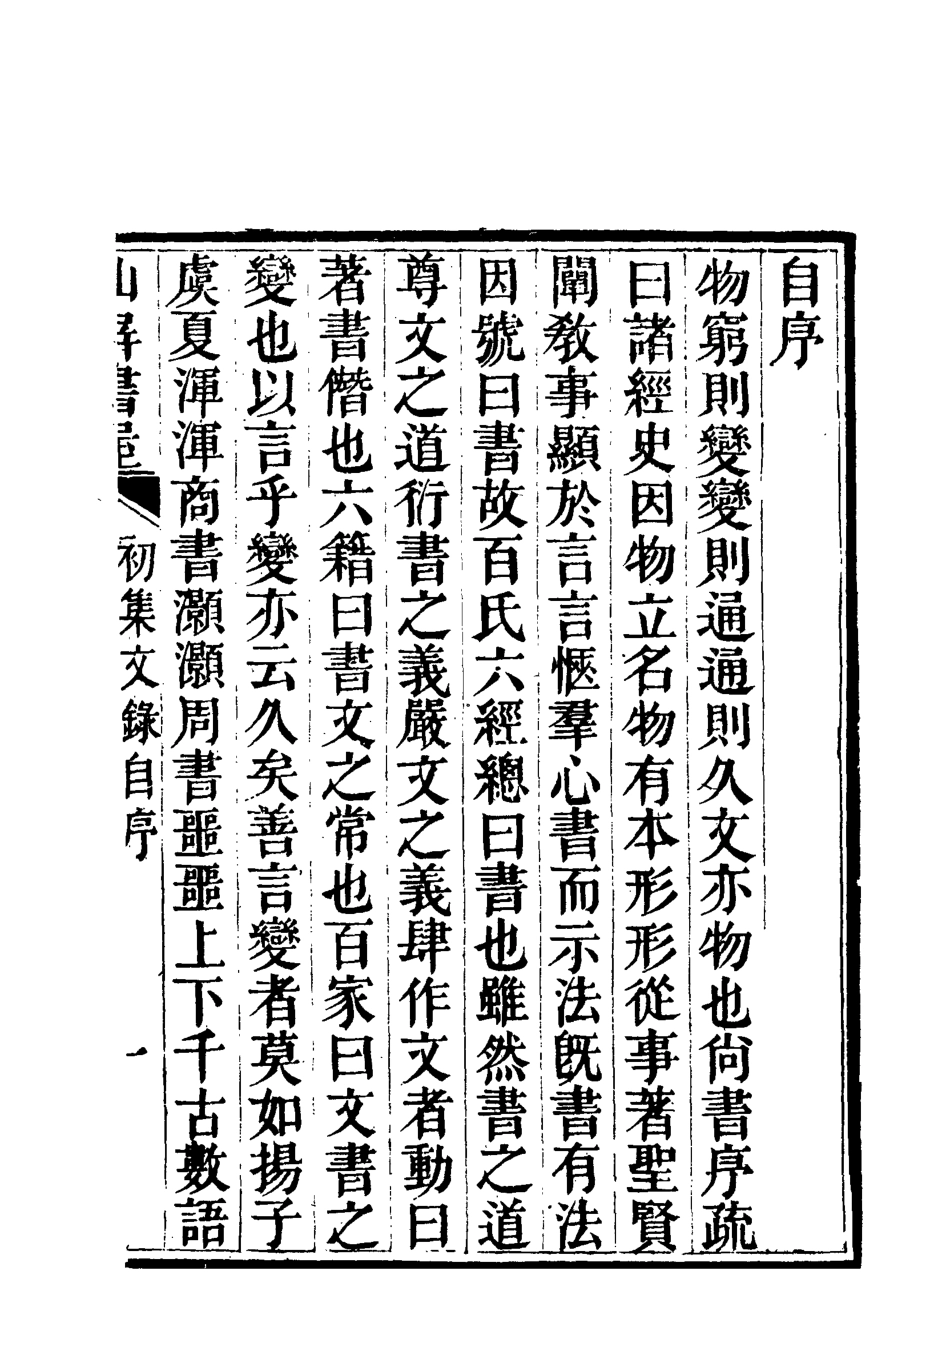 自序
物窮則變變則通通則久文亦物也尙書序疏
曰諸經史因物立名物有本形形從事著聖賢
闡敎事顯於言言愜羣心書而示法旣書有法
因號曰書故百氏六經總曰書也雖然書之道
尊文之道衍書之義嚴文之義肆作文者動曰
著書僭也六籍曰書文之常也百家曰文書之
變也以言乎變亦云久矣善言變者莫如揚子
虞夏渾渾商書灝灝周書噩噩上下千古數語
初集文錄自序 一